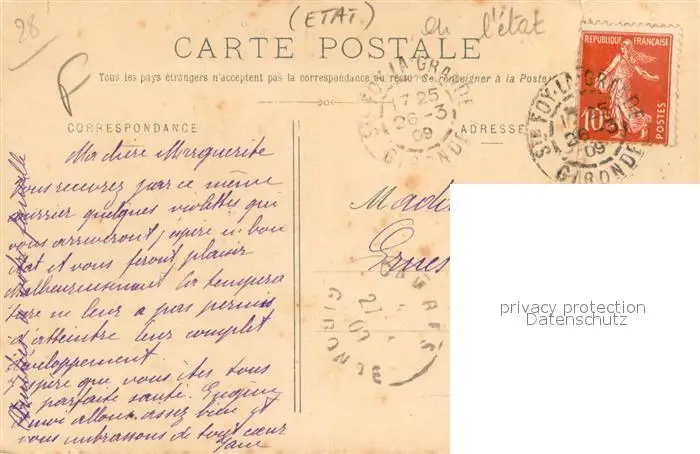 28
(ETAT)
en l'état
CARTE POSTALE
Tous les pays étrangers n'acceptent pas la correspondance au recto (Se renseigner à la Poste)
RÉPUBLIQUE FRANÇAISE
10c
POSTES
STE FOY-LA-GRANDE
17 25
26-3
09
GIRONDE
STE FOY-LA-GRANDE
17 25
26-3
09
GIRONDE
CORRESPONDANCE
ADRESSE
Ma chère Marguerite
Vous recevrez par ce même
courrier quelques violettes qui
vous arriveront j'espère en bon
état et vous feront plaisir
Malheureusement la tempera
ture ne leur a pas permis
d'atteindre leur complet
développement.
J'espère que vous êtes tous
parfaite santé. Eugène
moi allons assez bien et
vous embrassons de tout cœur
Jane
Mad
27
09
GIRONDE
privacy protection
Datenschutz